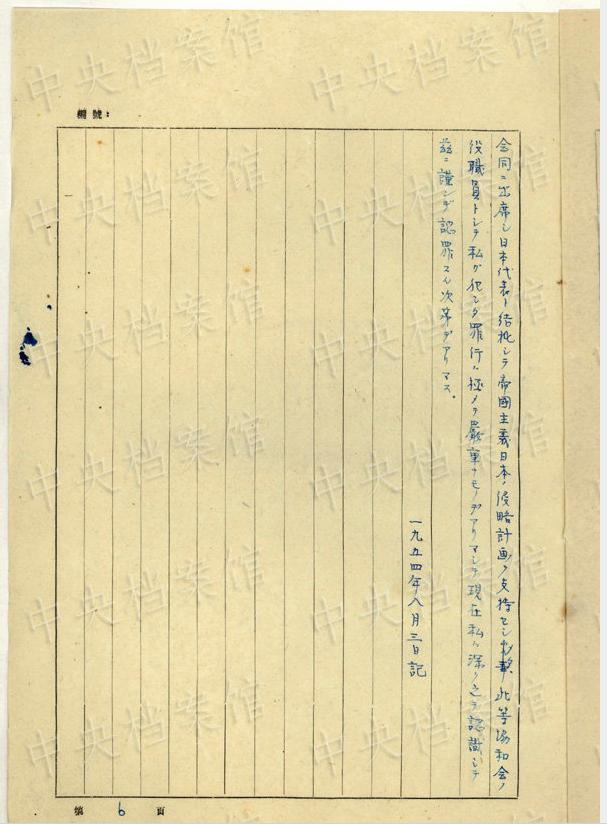 編號:
会同ニ出席シ日本代表ト結托シテ帝國主義日本ノ侵略計画ノ支持セシ 此等協和会ノ
役職員トシテ私ガ犯シタ罪行ハ極メテ嚴重ナモノデアリマシテ現在私ハ深ク之ヲ認識シテ
茲ニ謹ンデ認罪スル次第デアリマス。
一九五四年八月三日記
第 6 頁
中央档案馆